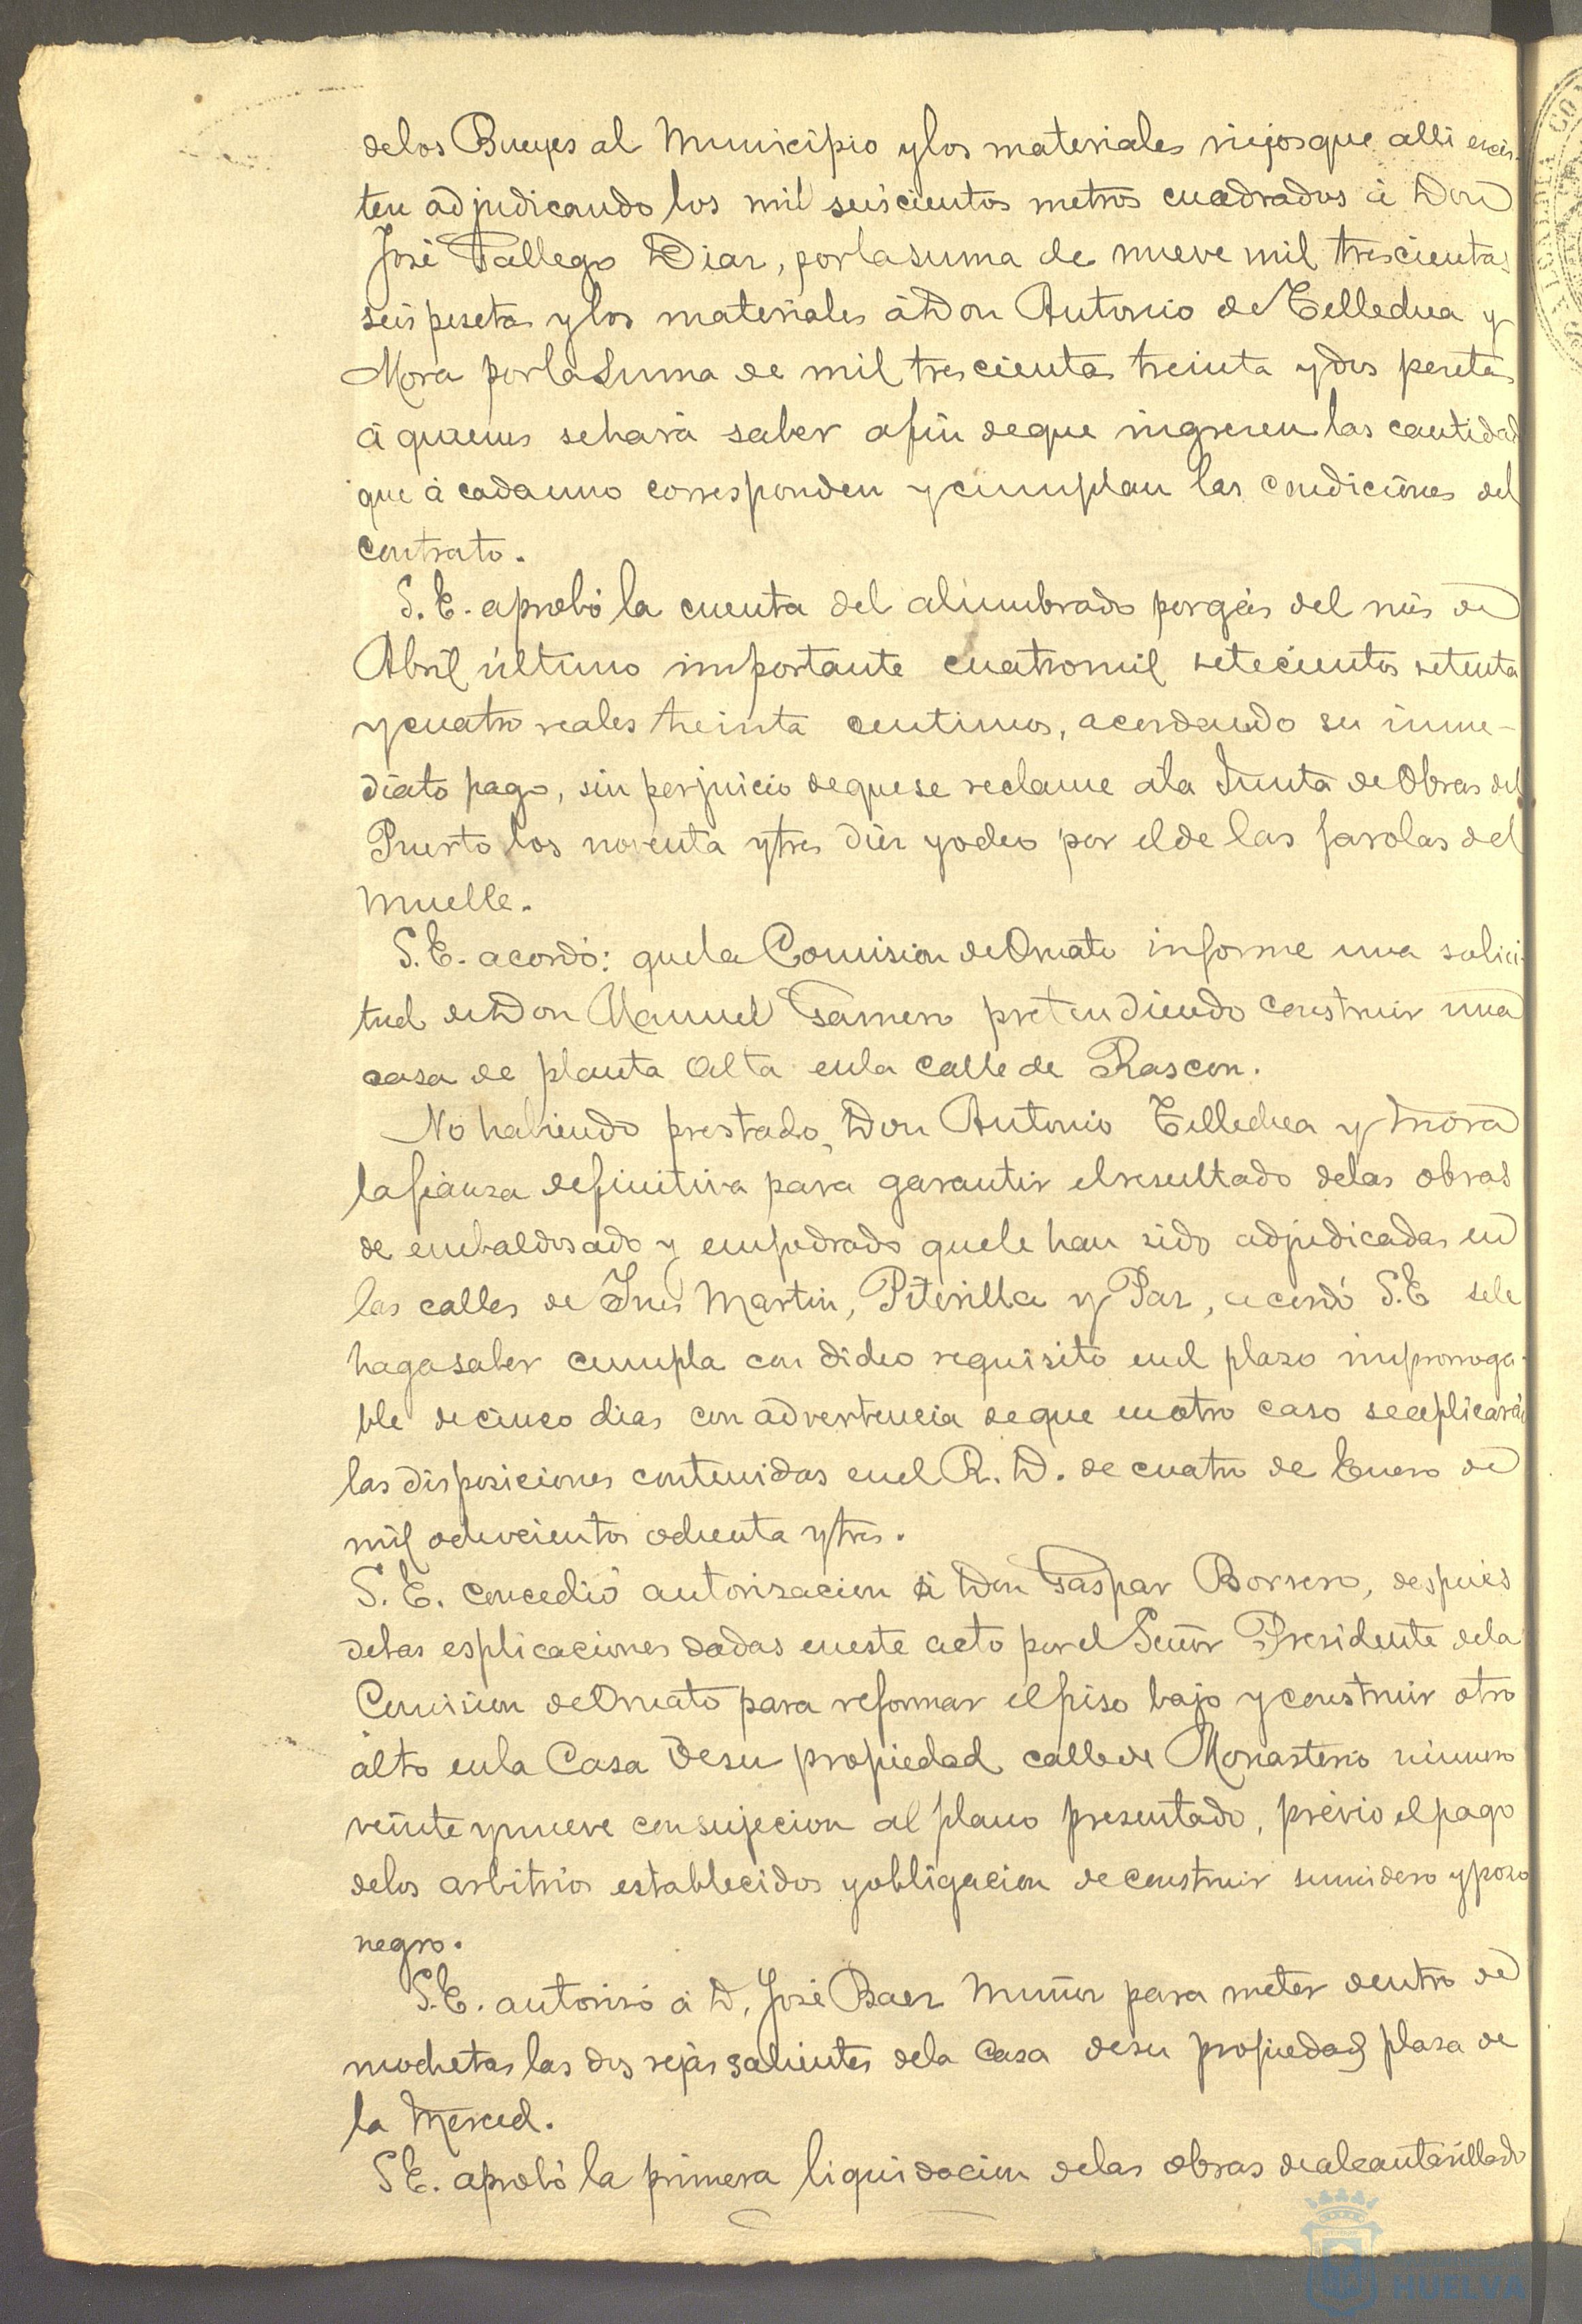 de los Bueyes al Municipio y los materiales viejos que alli exis-
ten adjudicando los mil seiscientos metros cuadrados á Don
José Gallego Diaz, por la suma de nueve mil trescientas
seis pesetas y los materiales á Don Antonio de Tellechea y
Mora por la suma de mil trescientas treinta y dos pesetas
á quienes se hará saber a fin de que ingresen las cantidad
que á cada uno corresponden y cumplan las condiciones del
contrato.
S. E. aprobó la cuenta del alumbrado por gás del mes de
Abril último importante cuatro mil setecientos setenta
y cuatro reales treinta centimos, acordando su inme-
diato pago, sin perjuicio de que se reclame á la Junta de Obras del
Puerto los noventa y tres diez y ocho por el de las farolas del
Muelle.
S. E. acordó: que la Comision de Ornato informe una solici-
tud de Don Manuel Garrero pretendiendo construir una
casa de planta alta en la calle de Rascon.
No habiendo prestado, Don Antonio Tellechea y Mora
la fianza definitiva para garantir el resultado de las obras
de embaldosado y empedrado que le han sido adjudicadas en
las calles de Ines Martin, Piterilla y Paz, acordó S. E se le
haga saber cumpla con dicho requisito en el plazo improrroga-
ble de cinco dias con advertencia de que en otro caso se aplicarán
las disposiciones contenidas en el R. D. de cuatro de Enero de
mil ochocientos ochenta y tres.
S. E. concedió autorizacion á Don Gaspar Borrero, después
de las esplicaciones dadas en este acto por el Señor Presidente de la
Comision de Ornato para reformar el piso bajo y construir otro
alto en la Casa de su propiedad calle de Monasterio número
veinte y nueve con sujecion al plano presentado, prévio el pago
de los arbitrios establecidos y obligacion de construir sumidero y pozo
negro.
S. E. autorizó á D. José Baez Muñoz para meter dentro de
mochetas las dos rejas salientes de la Casa de su propiedad plaza de
la Merced.
S E. aprobó la primera liquidacion de las obras de alcantarillado
HUELVA